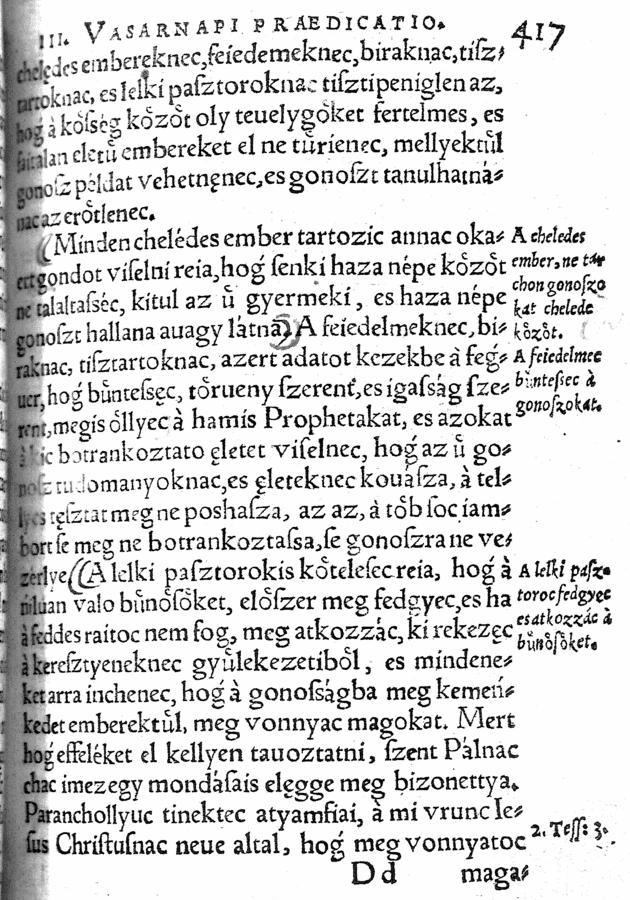 III. VASARNAPI PRAEDICATIO. 417
cheledes embereknec, feiedemeknec, biraknac, tiſz⸗
tartoknac, es lelki paſztoroknac tiſztipeniglen az,
hog̓ à kỏſség kỏzỏt oly teuelygỏket fertelmes, es
faitalan eletů embereket el ne tůrienec, mellyektůl
gonoſz példat vehetnęnec, es gonoſzt tanulhatná⸗
nac az erỏtlenec.
(Minden chelédes ember tartozic annac oka⸗
ert gondot viſelni reia, hog̓ ſenki haza népe kỏzỏt
ne talaltaſséc, kitul az ů gyermeki, es haza népe
gonoſzt hallana auagy látna) A feiedelmeknec, bi⸗
raknac, tiſztartoknac, azert adatot kezekbe à feg̓⸗
uer, hog̓ bůnteſsęc, tỏrueny ſzerent, es igaſság ſze⸗
rent, megis ỏllyec à hamis Prophetakat, es azokat
à kic botrankoztato ęletet viſelnec, hog̓ az ů go⸗
noſz tudomanyoknac, es ęleteknec kouáſza, à tel⸗
lyes tęſztat meg ne poshaſza, az az, à tỏb ſoc iam⸗
bort ſe meg ne botrankoztaſsa, ſe gonoſzra ne ve⸗
zerlye ((A lelki paſztorokis kỏteleſec reia, hog̓ à
niluan valo bůnỏſỏket, elỏſzer meg fedgyec, es ha
à feddes raitoc nem fog, meg atkozzác, ki rekezęc
à kereſztyeneknec gyůlekezetibỏl, es mindene⸗
ket arra inchenec, hog̓ à gonoſságba meg kemeń⸗
kedet emberektůl, meg vonnyac magokat. Mert
hog̓ effeléket el kellyen tauoztatni, ſzent Pálnac
chac imez egy mondáſais elęgge meg bizonettya.
Paranchollyuc tinektec atyamfiai, à mi vrunc Ie⸗
ſus Chriſtuſnac neue altal, hog̓ meg vonnyatoc
D d maga⸗
A cheledes
ember, ne tar
chon gonoſzo
kat chelede
kỏzỏt.
A feiedelmec
bůnteſsec à
gonoſzokat.
A lelki paſz⸗
toroc fedgyec
es atkozzác à
bůnỏſỏket.
2. Teſſ: 3.